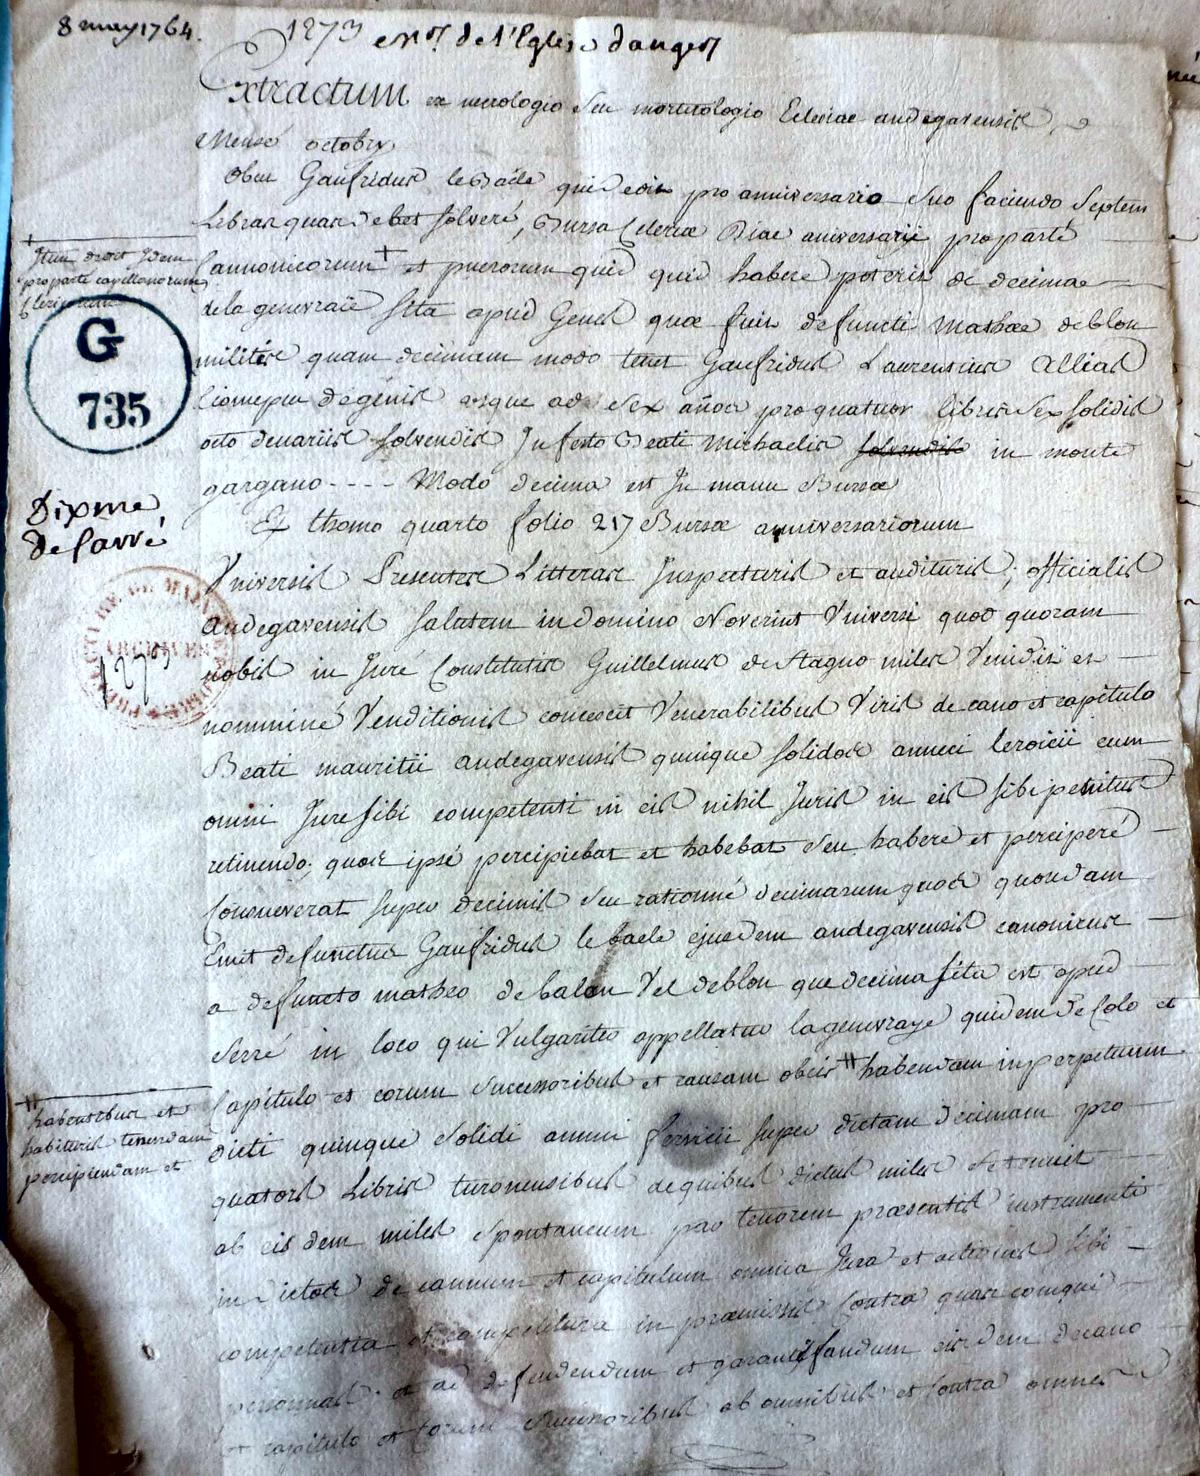 8 may 1764.
1273 de l'Eglise dangers
Extractum ex necrologio seu mortuologio Ecclesiae andegavensis
Mense octobry
Obiit Gaufridus le Baële qui pro anniversario suo faciendo septem
Libras quas debet solvere, Bursa anniversarii pro parte
Cannonicorum + et puerorum quid quid habere poterit de decima
Item debet Idem
pro parte capellanorum
Clericorum
de la genevraie sita apud Genes quae fuit defuncti Mathae de blou
militis quam decimam modo tenet Gaufridus Laurensius Allias
G
735
usque ad sex años pro quatuor libris sex solidis
octo denariis solvendis In festo Beati Michaelis solvendis in monte
gargano ---- Modo decima est In manu Bursae
Dixme
de sarré
Ex thomo quarto folio 217 Bursae anniversariorum
Universis Presentes Litteras Inspecturis et audituris, officialis
andegavensis salutem in domino Noverint Universi quod quoram
ARCHIVES
1273
nobis in Jure Constitutus Guillelmus de Stagno miles Vendidit et
nomminé Venditionis concessit Venerabilibus Viris decano et capitulo
Beati mauritii andegavensis quinque solidos annui
cum
omni Jure sibi competenti in eis nihil Juris in eis sibi penitus
retinendo; quos ipse percipiebat et habebat seu habere et percipere
Consueverat super decimis seu rationné decimarum quos quondam
Emit defunctus Gaufridus le baele ejusdem andegavensis canonicus
a defuncto matheo de balon Vel deblou que decima sita est apud
Serré in loco qui Vulgariter appellatur la genevraye quidem
et
Capitulo et eorum Successoribus et causam ab eis # habendam in perpetuum
# habentibus et
habituris tenendam
percipiendam et
dicti quinque solidi annui servicii super dictam decimam pro
quators Libris turonensibus de quibus dictus miles se tenuit
ab eisdem miles spontaneum per tenorem praesentis instrumenti
in dictos decannum et capitulum omnia Jura et actiones sibi
competentia et competitura in praemissis Contra quascomque
personnas et ad defendendum et garantisandum eisdem decano
et capitulo et eorum Successoribus ab omnibus et Contra omnes